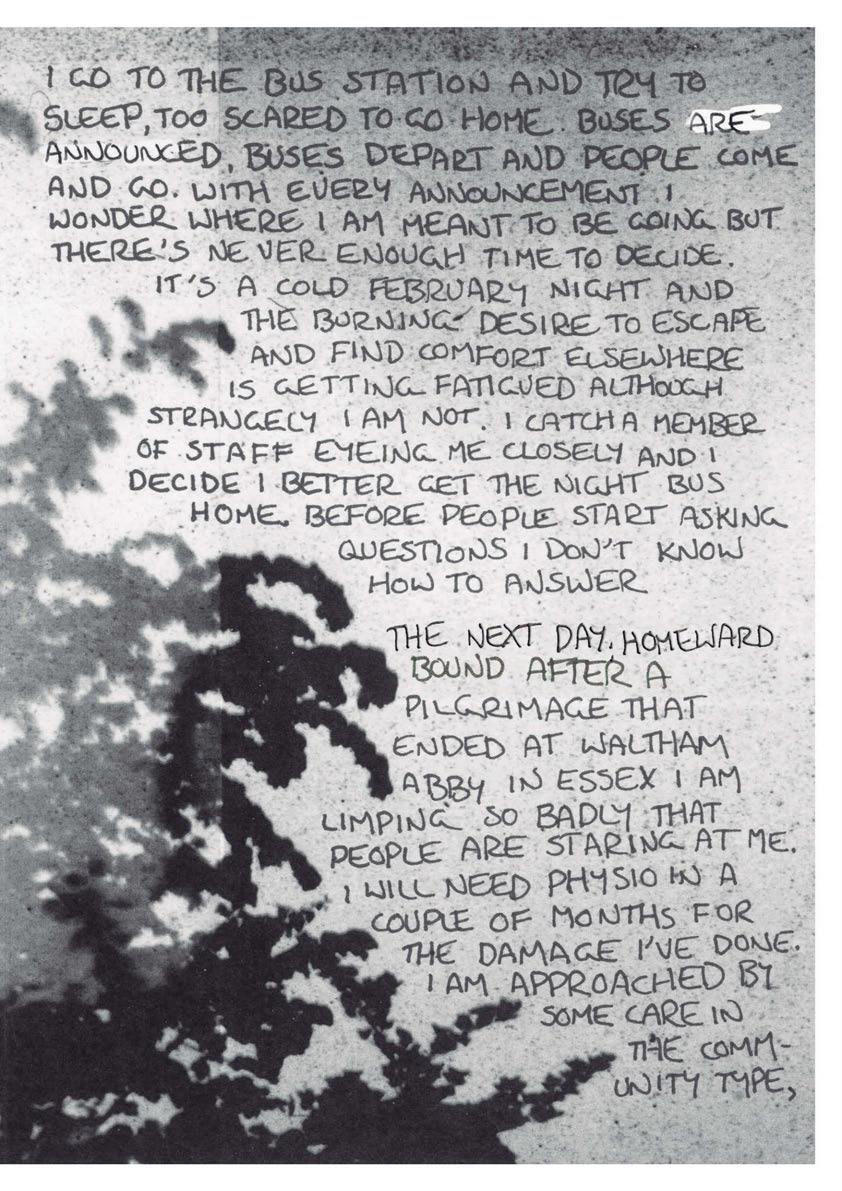 I GO TO THE BUS STATION AND TRY TO
SLEEP, TOO SCARED TO GO HOME. BUSES ARE
ANNOUNCED, BUSES DEPART AND PEOPLE COME
AND GO. WITH EVERY ANNOUNCEMENT I
WONDER WHERE I AM MEANT TO BE GOING BUT
THERE'S NEVER ENOUGH TIME TO DECIDE.
IT'S A COLD FEBRUARY NIGHT AND
THE BURNING DESIRE TO ESCAPE
AND FIND COMFORT ELSEWHERE
IS GETTING FATIGUED ALTHOUGH
STRANGELY I AM NOT. I CATCH A MEMBER
OF STAFF EYEING ME CLOSELY AND I
DECIDE I BETTER GET THE NIGHT BUS
HOME. BEFORE PEOPLE START ASKING
QUESTIONS I DON'T KNOW
HOW TO ANSWER
THE NEXT DAY, HOMEWARD
BOUND AFTER A
PILGRIMAGE THAT
ENDED AT WALTHAM
ABBY IN ESSEX I AM
LIMPING SO BADLY THAT
PEOPLE ARE STARING AT ME.
I WILL NEED PHYSIO IN A
COUPLE OF MONTHS FOR
THE DAMAGE I'VE DONE.
I AM APPROACHED BY
SOME CARE IN
THE COMM-
UNITY TYPE,